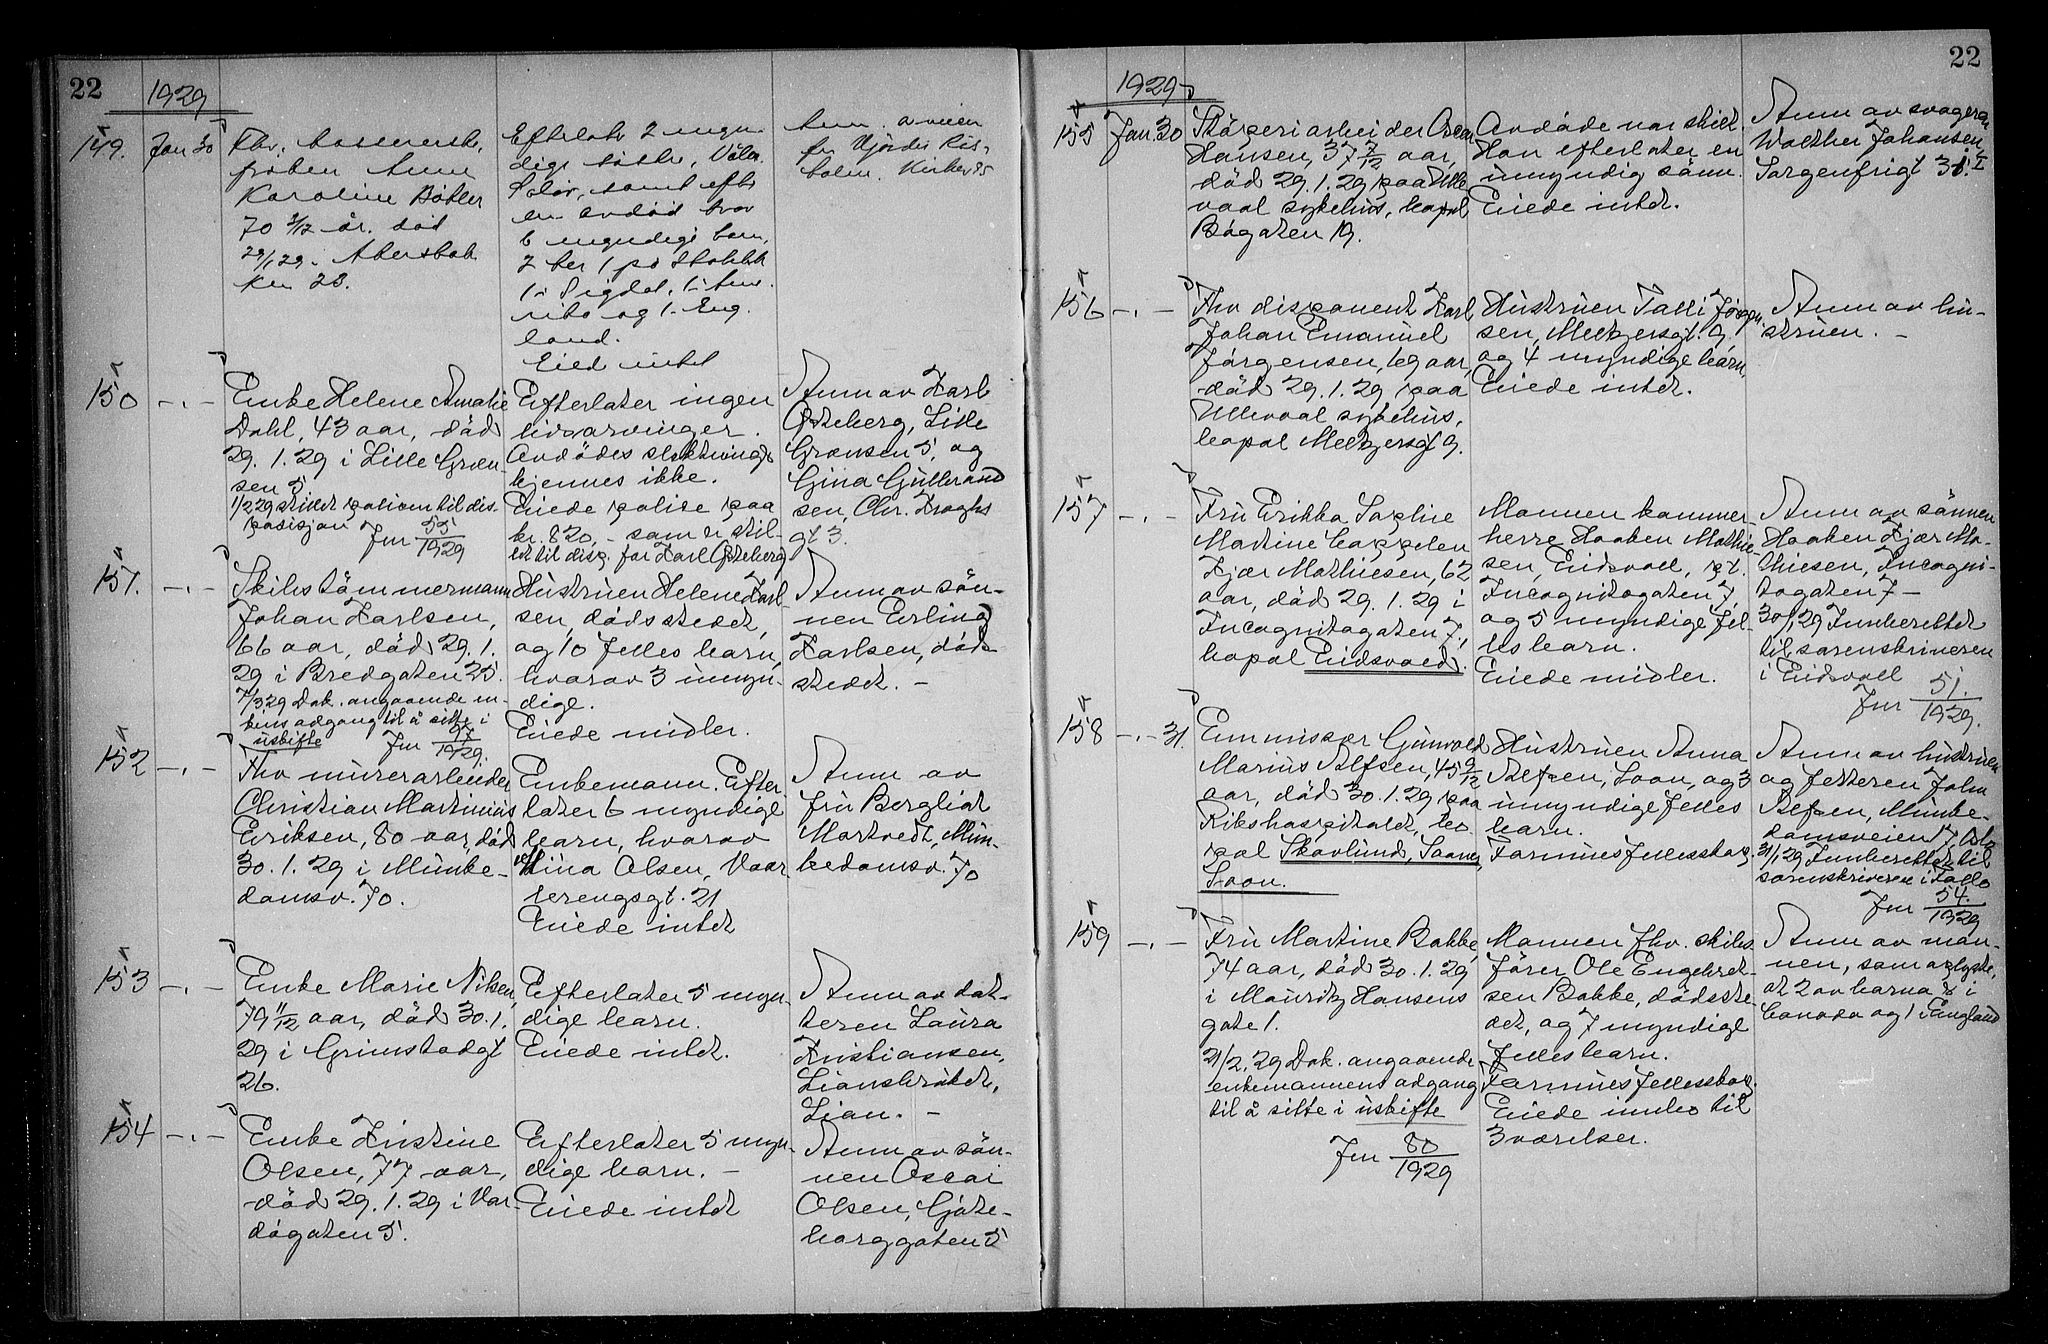 22
1929
149. Jan 30
Karoline
70 3/12 år. død
29/1 29.
28.
Efterlater 2 myn-
dige
6 myndige barn,
1 - Sigdal,
og 1 - Eng-
land.
Eied intet
150 -.-
Enke Helene Amalie
Dahl, 43 aar, död
29.1.29 i Lille Græn-
sen 5
1/2 29 stillet polisen til dis-
posisjon Jnr 55/1929
Efterlater ingen
livsarvinger.
Avdödes slektninger
kjennes ikke.
Eiede polise paa
kr. 820,- som er stil-
let til disp. for Karl Østeberg
Anm av Karl
Østeberg, Lille
Grænsen 5, og
Gina Gulbrand
sen, Chr. Kroghs
gt 3.
151. -.-
Skibstömmermann
Johan Karlsen,
66 aar, död 29.1.
29 i Bredgaten 25.
7/3 29 Dok. angaaende en-
kens adgang til å sitte i
uskifte Jnr 97/1929.
Hustruen Helene Karl-
sen, dödsstedet,
og 10 felles barn,
hvorav 3 umyn-
dige.
Eiede midler.
Anm av sön-
nen Erling
Karlsen, döds
stedet. -
152 -.-
Fhv murerarbeider
Christian Martinius
Eriksen, 80 aar, död
30.1.29 i Munke-
damsv. 70.
Enkemann. Efter-
later 6 myndige
barn, hvorav
Olsen, Vaar
lerengsgt. 21
Eiede intet
Anm av
fru Bergliot
Martvedt, Mun-
kedamsv. 70
153 -.-
Enke Marie Nilsen,
79 11/12 aar, död 30.1.
29 i Grimstadgt
26.
Efterlater 5 myn-
dige barn.
Eiede intet.
Anm av dat-
teren Laura
Kristiansen,
Liansbruket,
Lian. -
154 -.-
Enke Kristine
Olsen, 77 aar,
död 29.1.29 i Var-
dögaten 5.
Efterlater 5 myn-
dige barn. -
Eiede intet
Anm av sön-
nen Oscar
Olsen, Göte-
borggaten 5
22
1929
155 Jan 30
Skarperiarbeider Oscar
Hansen, 37 7/12 aar,
död 29.1.29 paa Ulle-
vaal sykehus, bopal
Bögaten 19.
Avdöde var skilt.
Han efterlater en
umyndig sönn.
Eiede intet.
Anm av svogeren
Walther Johansen,
Sorgenfrigt 31 I
156 -.-
Fhv disponent Karl
Johan Emanuel
Jörgensen, 69 aar,
död 29.1.29 paa
Ullevaal sykehus,
bopal Meltzersgt 9.
Hustruen Talli Jörgen-
sen, Meltzersgt. 9,
og 4 myndige barn.
Eiede intet.
Anm av hu-
struen. -
157 -.-
Fru Erikka Sophie
Martine Cappelen
Kjær Mathiesen, 62
aar, död 29.1.29 i
Incognitogaten 7,
bopal Eidsvold.
Mannen kammer-
herre Haaken Mathie-
sen, Eidsvoll, pt.
Incognitogaten 7,
og 5 myndige fel-
les barn.
Eiede midler.
Anm av sönnen
Haaken Kjær Ma-
thiesen, Incogni-
togaten 7 -
30/1 29 Innberettet
til sorenskriveren
i Eidsvoll
Jnr 51./1929.
158 -.- 31.
Emmissær Gunvald
Marius Alfsen, 45 9/12
aar, död 30.1.29 paa
Rikshospitalet, bo-
pal Skovlund, Saaner,
Soon.
Hustruen Anna
Alfsen, Soon, og 3
umyndige felles
barn.
Formuesfellesskap.
Anm av hustruen
og fetteren John
Alfsen, Munke-
damsveien 17, Oslo
31/1 29 Innberettet til
sorenskriveren i Follo
Jnr 54./1929
159 -.-
Fru Martine Bakke,
74 aar, död 30.1.29
i Mauritz Hansens
gate 1.
21/2.29 Dok. angaaende
enkemannens adgang
til å sitte i uskifte
Jnr 80/1929
Mannen fhv. skibs-
förer Ole Engebret-
sen Bakke, dödsste-
det, og 7 myndige
felles barn.
Formuesfellesskap.
Eiede innbo til
3 værelser.
Anm av man-
nen, som oplyste,
at 2 av barna er i
Canada og 1 i England